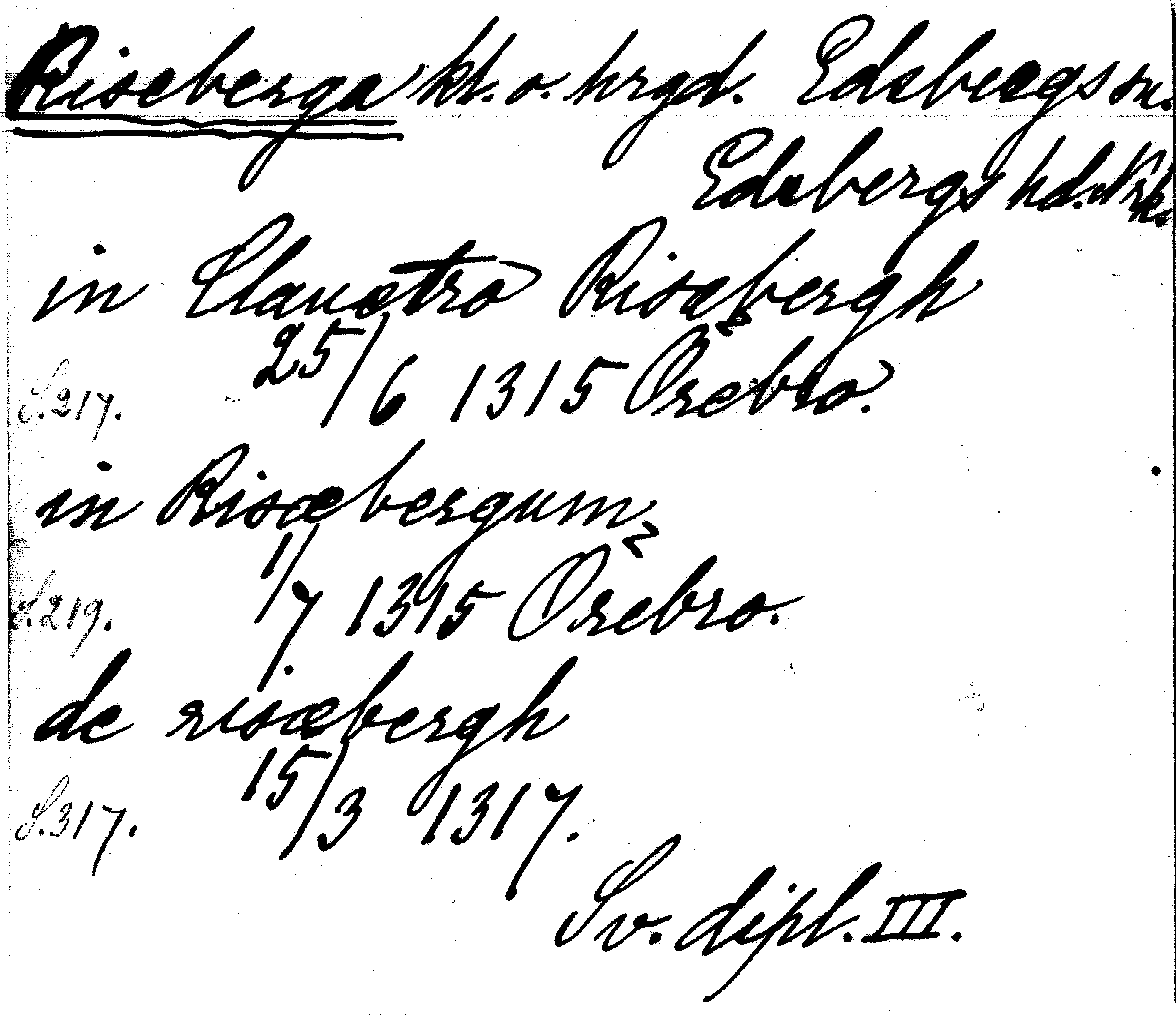 Riseberga kl. o. hrgd. Edsbergs sn.
Edsbergs hd. Nrke.
in Claustro Risæbergh
S. 217. 25/6 1315 Örebro.
in Risæbergum
S. 219. 1/7 1315 Örebro.
de risæbergh
S. 317. 15/3 1317.
Sv. dipl. III.